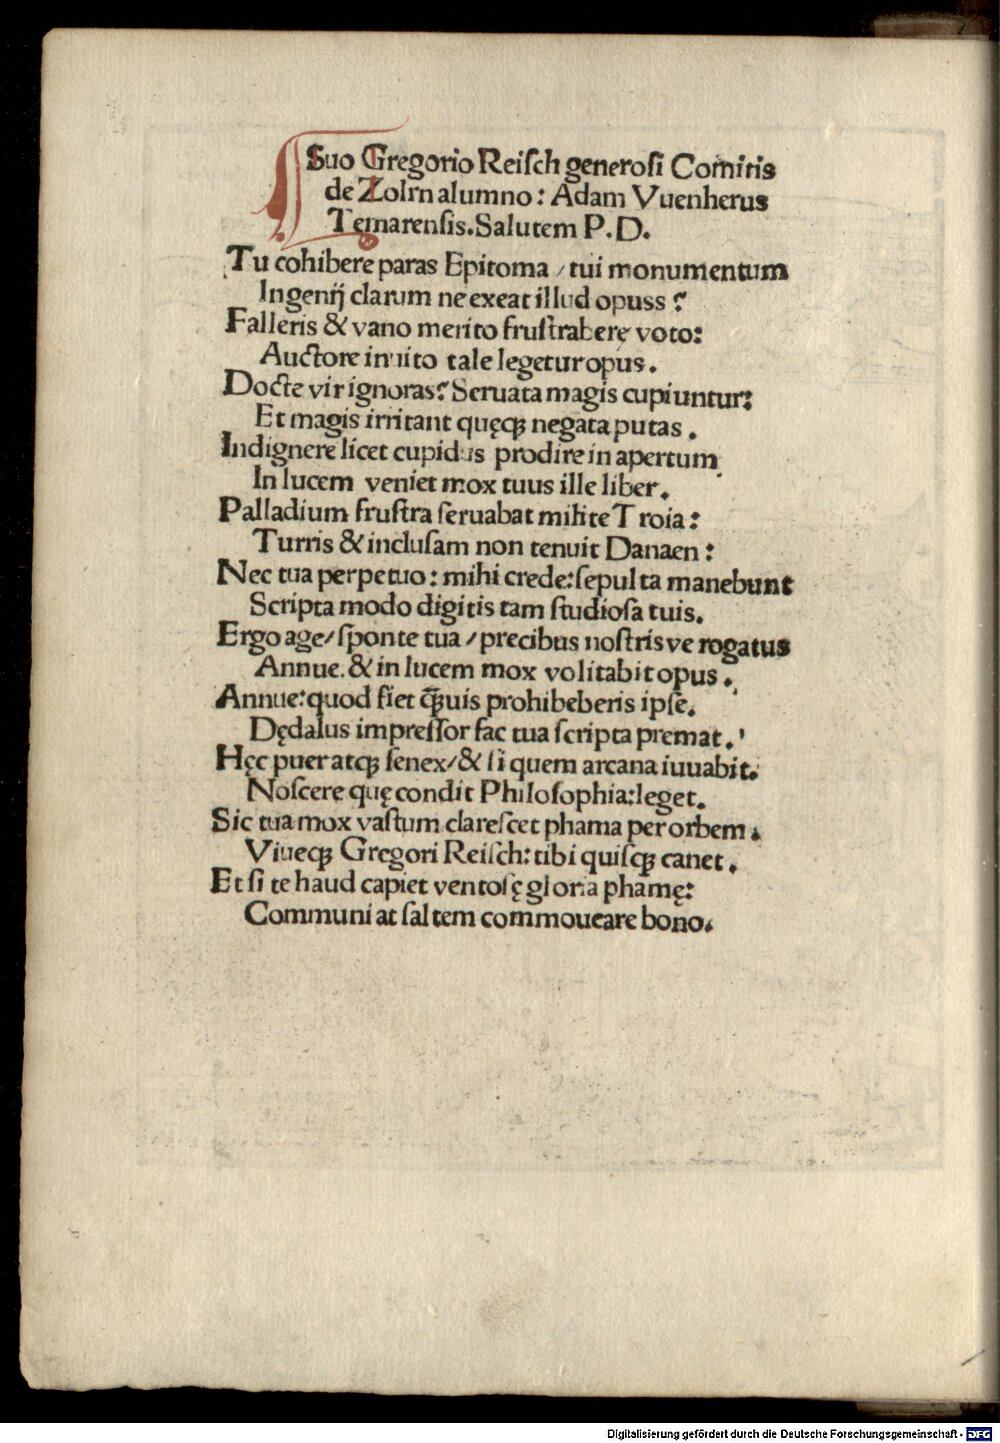 Suo Gregorio Reiſch generoſi Comitis
de Zolrn alumno: Adam Vuenherus
Temarenſis. Salutem P.D.
Tu cohibere paras Epitoma / tui monumentum
Ingenij clarum ne exeat illud opuss?
Falleris & vano merito fruſtraberę voto:
Auctore inuito tale legetur opus.
Docte vir ignoras? Seruata magis cupiuntur:
Et magis irritant quęcꝙ negata putas.
Indignere licet cupidus prodire in apertum
In lucem veniet mox tuus ille liber.
Palladium fruſtra ſeruabat milite Troia:
Turris & incluſam non tenuit Danaen:
Nec tua perpetuo: mihi crede: ſepulta manebunt
Scripta modo digitis tam ſtudioſa tuis.
Ergo age/ ſponte tua / precibus noſtris ve rogatus
Annue. & in lucem mox volitabit opus.
Annue: quod fiet ꝙ̃uis prohibeberis ipſe.
Dędalus impreſſor fac tua ſcripta premat.
Hęc puer atcꝙ ſenex/ & ſi quem arcana iuuabit.
Noſcere quę condit Philoſophia: leget.
Sic tua mox vaſtum clareſcet phama per orbem.
Viuecꝙ Gregori Reiſch: tibi quiſcꝙ canet.
Et ſi te haud capiet ventoſę gloria phamę:
Communi at ſaltem commoueare bono.
Digitalisierung gefördert durch die Deutsche Forschungsgemeinschaft - DFG